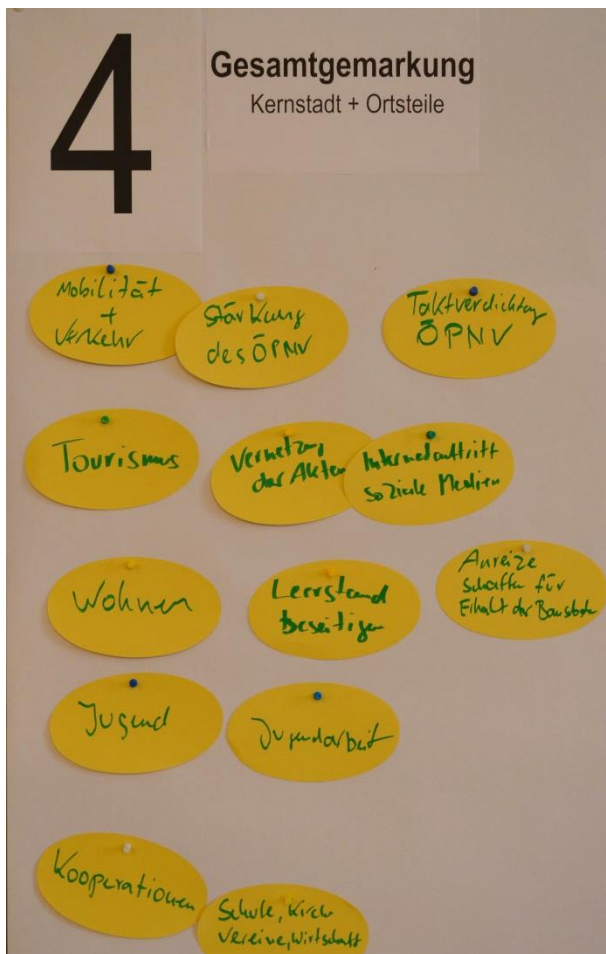 4
Gesamtgemarkung
Kernstadt + Ortsteile
Mobilität
+
Verkehr
Stärkung
des ÖPNV
Taktverdichtung
ÖPNV
Tourismus
Vernetzung
der Akteu
Internetauftritt
soziale Medien
Wohnen
Leerstand
beseitigen
Anreize
schaffen für
Erhalt der
Jugend
Jugendarbeit
Kooperationen
Schule, Kirche
Vereine, Wirtschaft